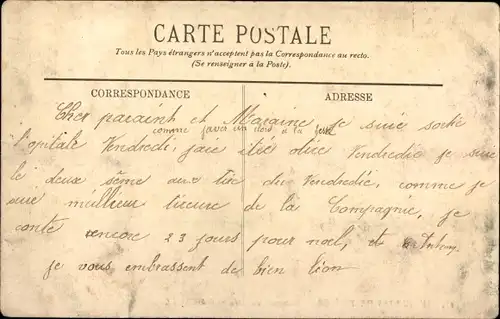 CARTE POSTALE
Tous les Pays étrangers n'acceptent pas la Correspondance au recto.
(Se renseigner à la Poste).
CORRESPONDANCE
ADRESSE
Cher paraint et Maraine, je suis sortie
comme javes un clou à la fesse
l'opitale Vendredi, jaie étié Vendredie je suie
le deux sême aux tire du Vendredie, comme je
suie meillieur tireure de la Compagnie, je
conte encore 23 jours pour noel, et
je vous embrassent de bien léon